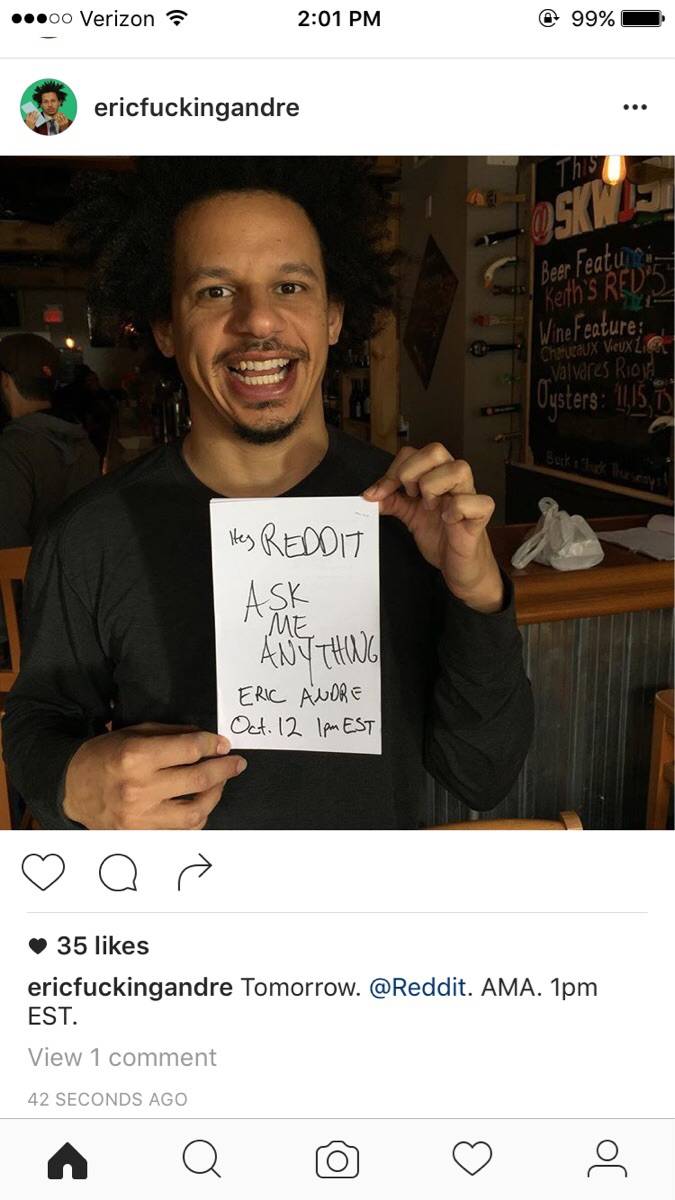 Verizon 2:01 PM 99%
ericfuckingandre
This
@SKW
Beer Featu
Keith's RED
Wine Feature:
Oysters: 11, 15,
Hey REDDIT
ASK
ME
ANYTHING
ERIC ANDRE
Oct. 12 1pm EST
35 likes
ericfuckingandre Tomorrow. @Reddit. AMA. 1pm
EST.
View 1 comment
42 SECONDS AGO